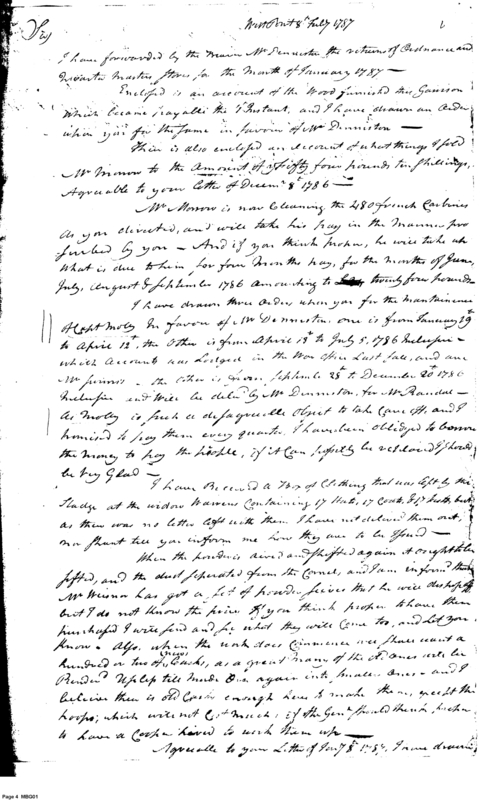 West Point 8th Feby 1787
Sir
I have forwarded by the Bearer Mr Denniston the returns of Ordnance and
Quarter Masters Stores for the Month of January 1787 —
Enclosed is an account of the Wood furnished this Garrison
which became payable the 1st Instant, and I have drawn an Order
upon you for the same in favour of Mr Denniston —
There is also enclosed an Account of what things I sold
Mr Morrow to the Amount of fifty four pounds ten shillings,
Agreeable to your letter of Decemr 8th 1786 —
Mr Morrow is now Cleaning the 480 french Carbines
as you directed, and will take his pay in the Manner pre
scribed by you — And if you think proper, he will take up
what is due to him for four Months pay, for the months of June,
July, August & September 1786 amounting to twenty four pounds
I have drawn three Orders upon you for the Maintainence
of Capt Moley In favour of Mr Denniston. one is from January 29th
to April 12th. the other is from April 13th to July 5. 1786 Inclusive —
which Accounts was Lodged in the War Office Last fall, and are
the other is from September 28th to December 20th 1786
Inclusive and will be delivd by Mr Denniston, for Mr Randal —
As Moley is such a disagreeable object to take care off, and I
promised to pay them every quarter. I have been oblidged to borrow
the money to pay the people, if it can possibly be replaced I should
be Very Glad —
I have Received a Box of Clothing that was left by the
Sladge at the widow Warrens Containing 17 Hats, 17 Coats, & 17 Vests, but
as there was no letter left with them I have not delivered them out,
nor shant till you inform me how they are to be Issued —
When the powder is dried and shifted again it ought to be
sifted, and the dust seperated from the Cornes, and I am informd that
Mr Wisnor has got a Set of powder seives that he will dispose off
but I do not know the price. If you think proper to have them
purchased I will send and see what they will come too, and let you
Know — Also, when the work does Commence we shall want a
hundred or two of new Casks, as a great many of the old ones will be
Rendred Useless till made Over again into Smaller Ones — and I
beleive there is old Casks enough here to make them, except the
hoops, which will not Cost much; if the Genl should think proper
to have a Cooper hired to work them up —
Agreeable to your Letter of Jany 8th 1787, I have drawn
Page 4 MBG01